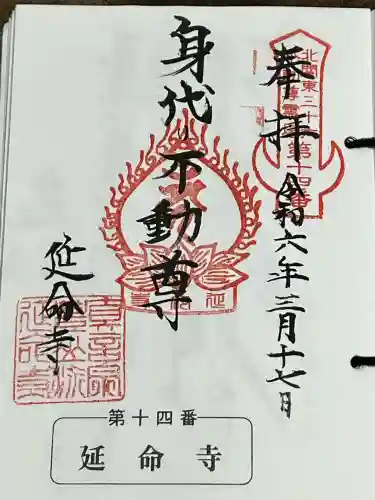 奉拝
令和六年三月十七日
北関東三十六
不動尊霊場第十四番
身代り不動尊
延命寺
第十四番
延命寺